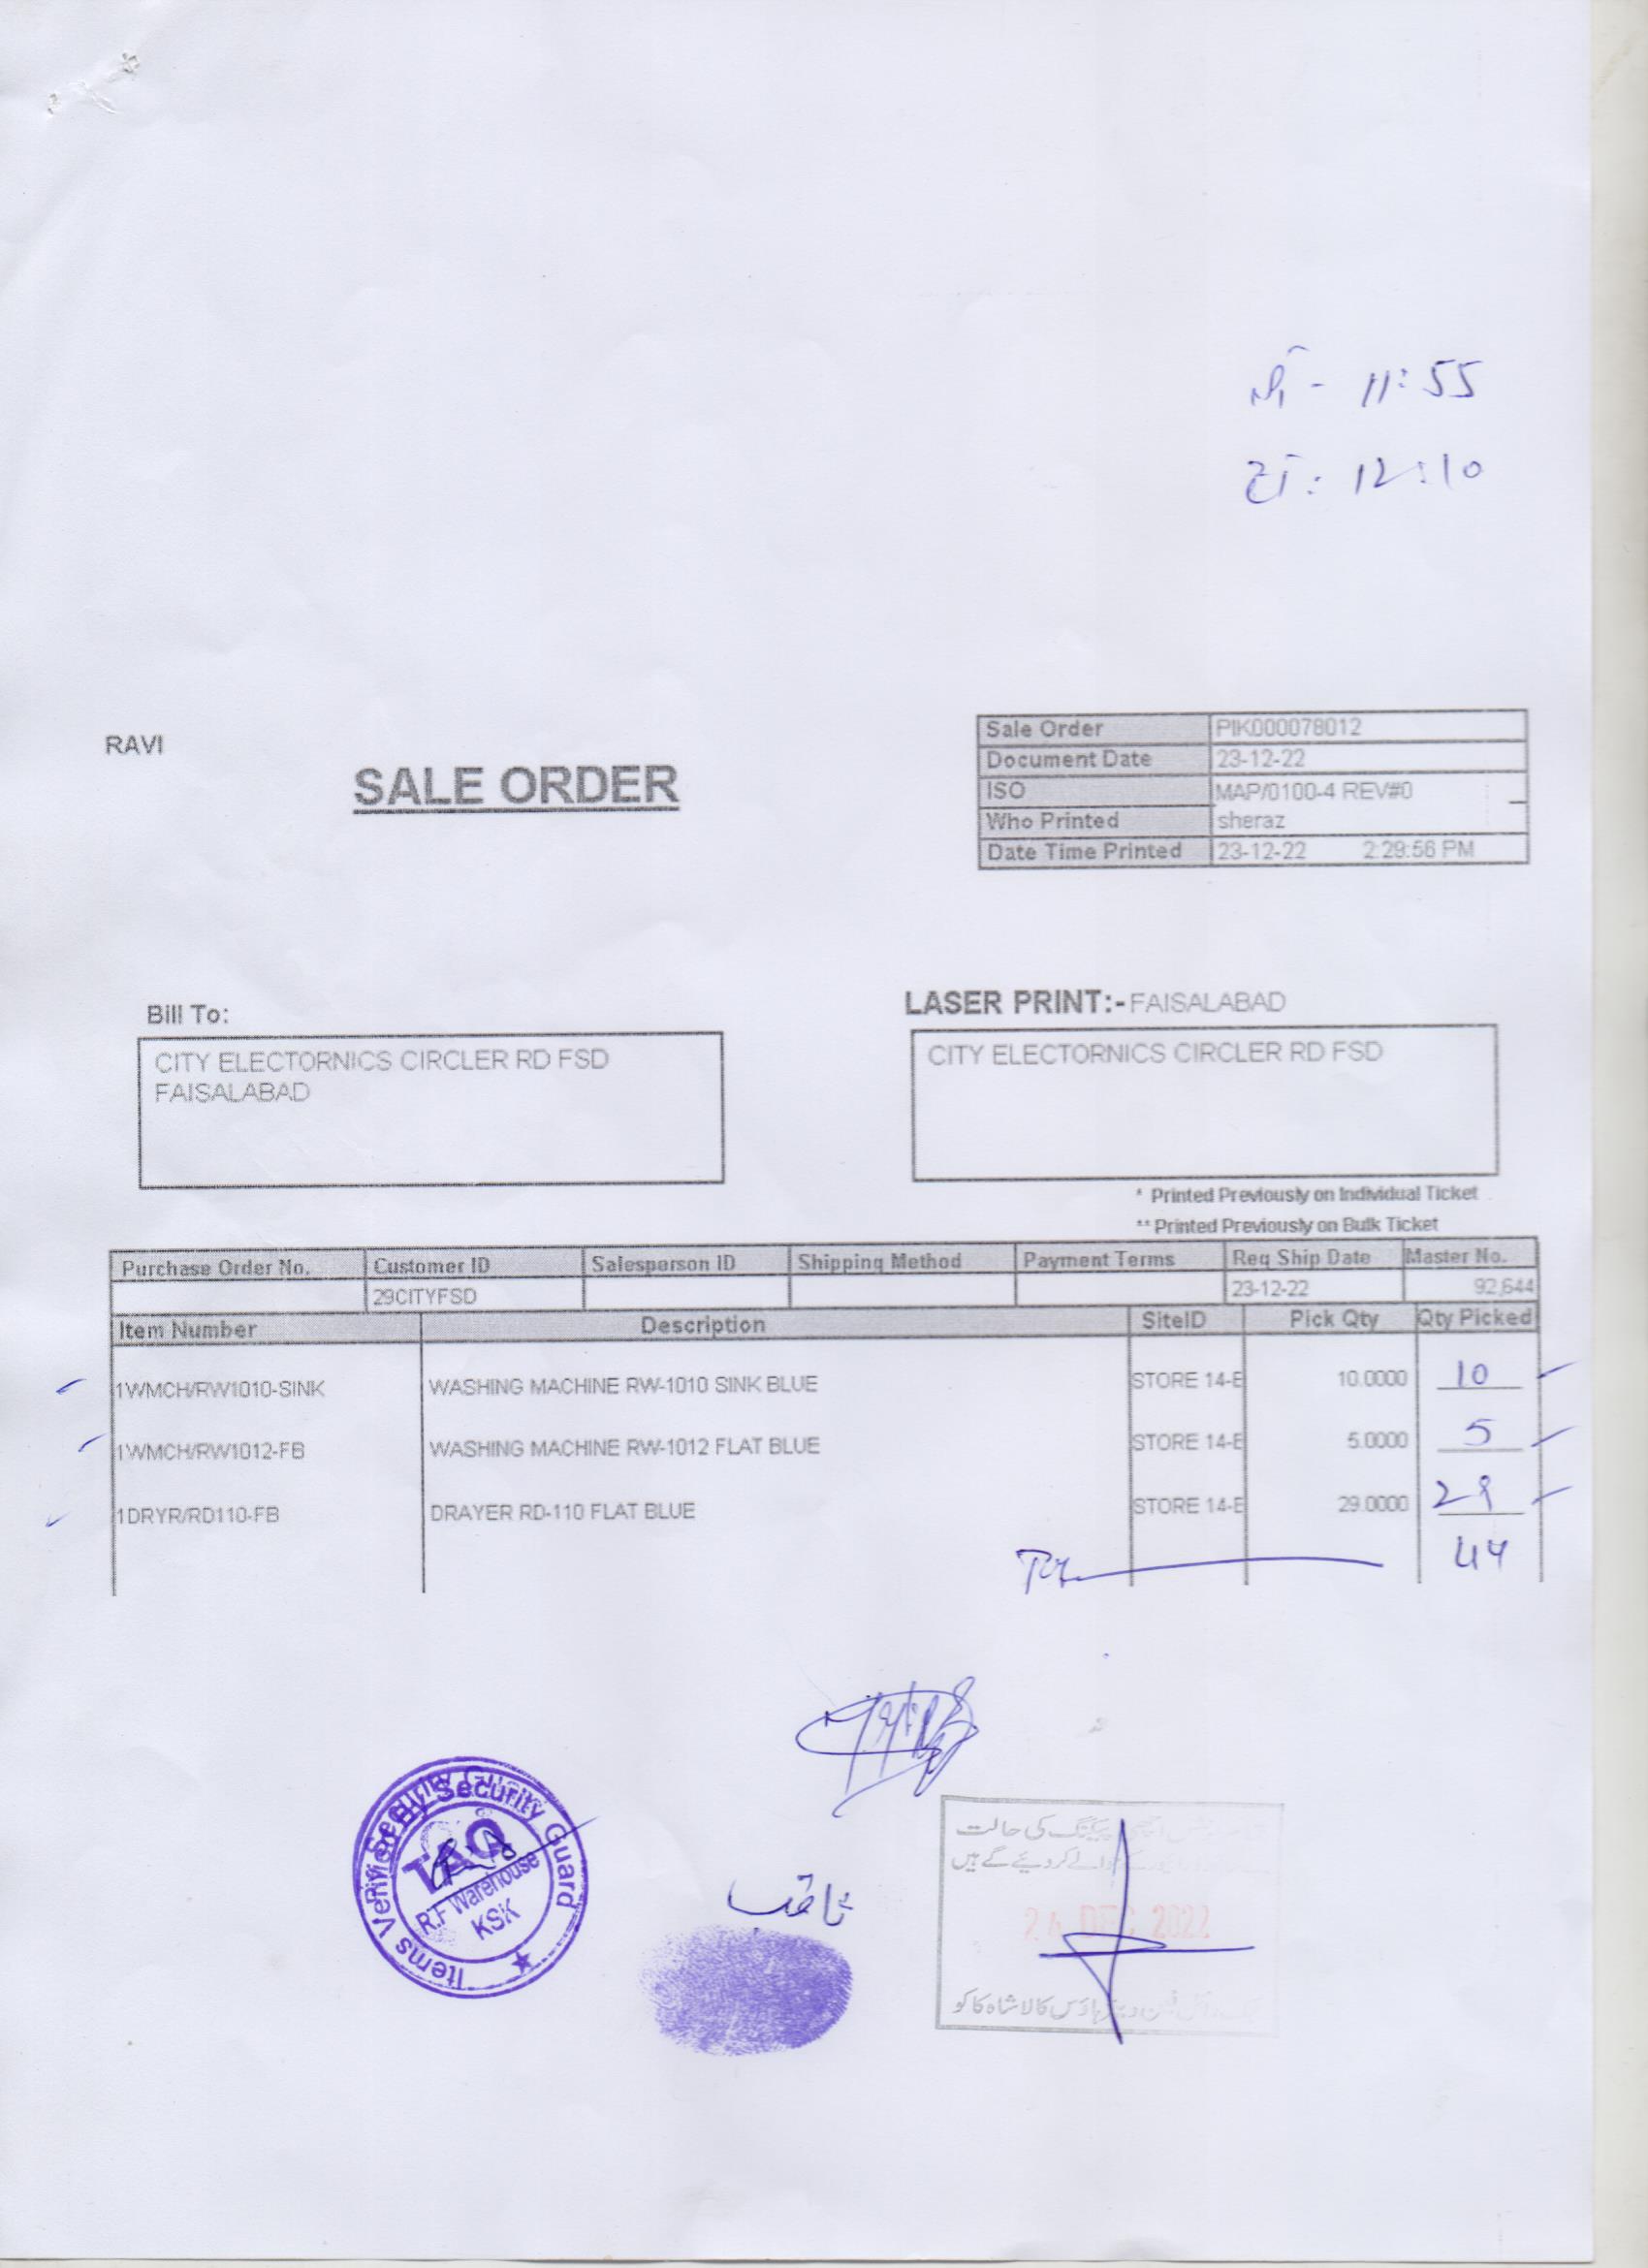 11:55
12:10
RAVI
SALE ORDER
Sale Order PIK000078012
Document Date 23-12-22
ISO MAP/0100-4 REV#0
Who Printed sheraz
Date Time Printed 23-12-22 2:29:56 PM
Bill To:
CITY ELECTORNICS CIRCLER RD FSD
FAISALABAD
LASER PRINT:- FAISALABAD
CITY ELECTORNICS CIRCLER RD FSD
* Printed Previously on Individual Ticket
** Printed Previously on Bulk Ticket
Purchase Order No. Customer ID Salesperson ID Shipping Method Payment Terms Req Ship Date Master No.
29CITYFSD 23-12-22 92,644
Item Number Description SiteID Pick Qty Qty Picked
1WMCH/RW1010-SINK WASHING MACHINE RW-1010 SINK BLUE STORE 14-E 10.0000 10
1WMCH/RW1012-FB WASHING MACHINE RW-1012 FLAT BLUE STORE 14-E 5.0000 5
1DRYR/RD110-FB DRAYER RD-110 FLAT BLUE STORE 14-E 29.0000 29
44
Items Verified By Security Guard
R.F Warehouse
KSK
ثاقب
پیکنگ کی حالت
کر دیئے گئے ہیں
24 DEC 2022
کالا شاہ کاکو